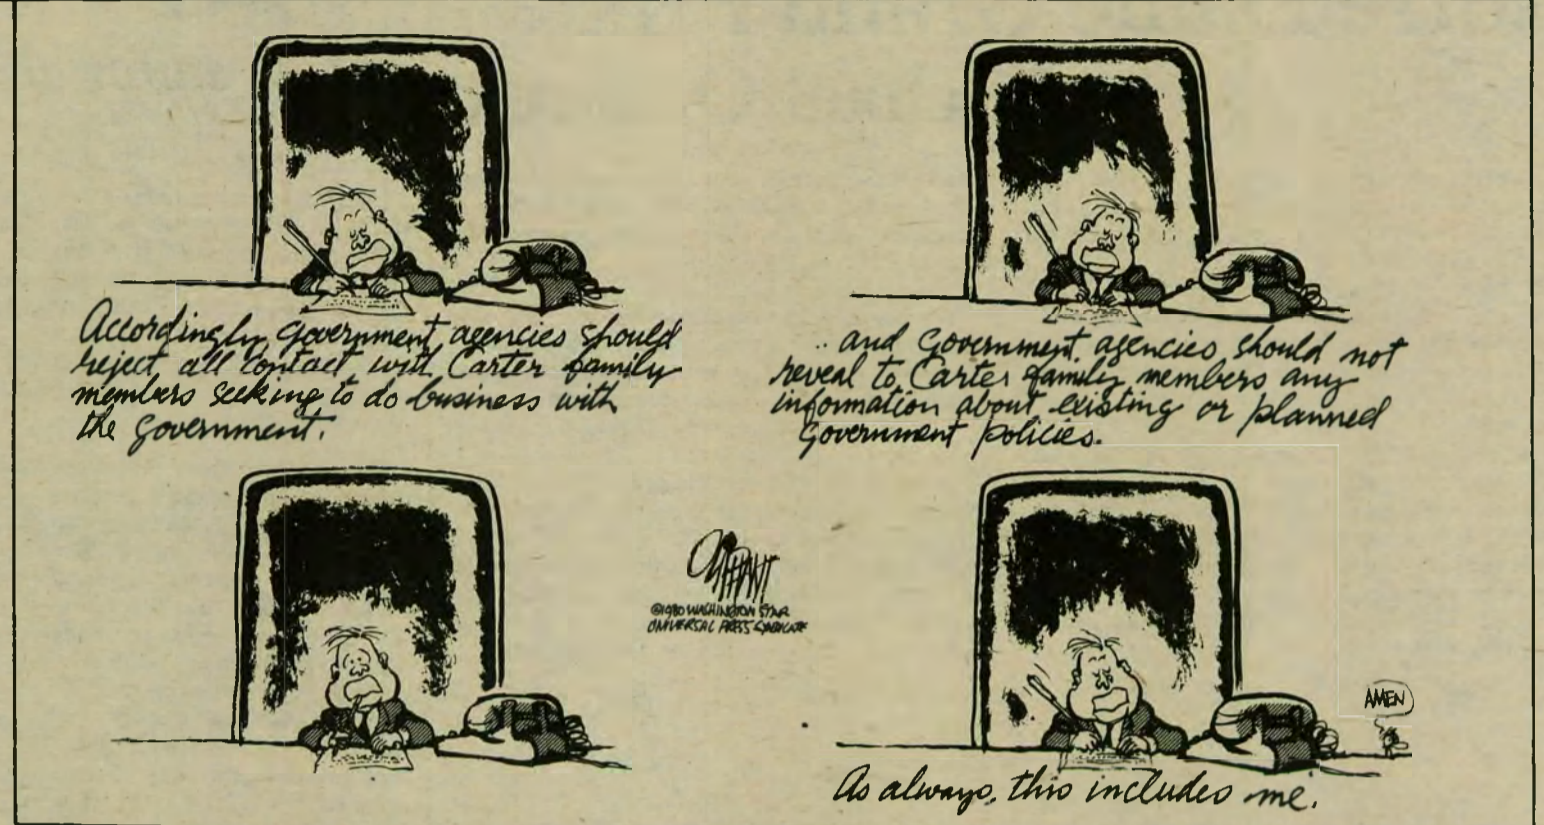 Accordingly, government agencies should
reject all contact with Carter family
members seeking to do business with
the government.
.. and Government agencies should not
reveal to Carter family members any
information about existing or planned
Government policies.
OLIPHANT
©1980 WASHINGTON STAR
UNIVERSAL PRESS SYNDICATE
AMEN
As always, this includes me.